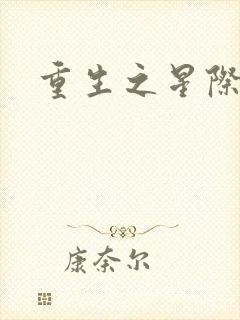 重生之星際
康奈尔